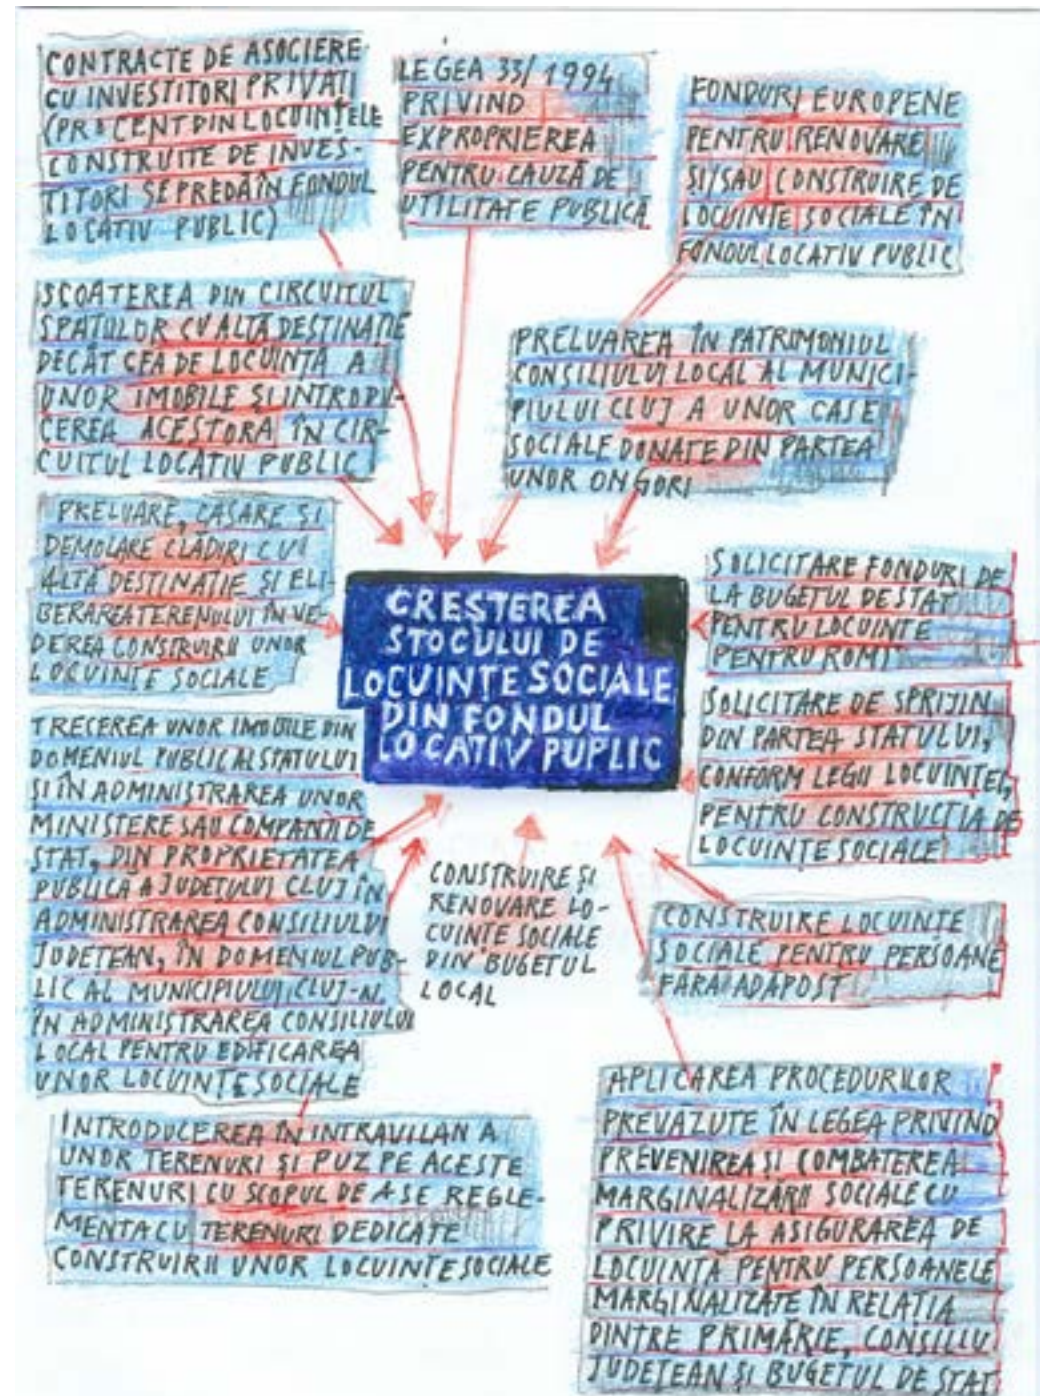 CONTRACTE DE ASOCIERE
CU INVESTITORI PRIVAȚI
(PROCENT DIN LOCUINȚELE
CONSTRUITE DE INVES-
TITORI SE PREDĂ ÎN FONDUL
LOCATIV PUBLIC)
LEGEA 33/1994
PRIVIND
EXPROPRIEREA
PENTRU CAUZĂ DE
UTILITATE PUBLICĂ
FONDURI EUROPENE
PENTRU RENOVARE
ȘI/SAU CONSTRUIRE DE
LOCUINȚE SOCIALE ÎN
FONDUL LOCATIV PUBLIC
SCOATEREA DIN CIRCUITUL
SPAȚIILOR CU ALTĂ DESTINAȚIE
DECÂT CEA DE LOCUINȚĂ A
UNOR IMOBILE ȘI INTRODU-
CEREA ACESTORA ÎN CIR-
CUITUL LOCATIV PUBLIC
PRELUAREA ÎN PATRIMONIUL
CONSILIULUI LOCAL AL MUNICI-
PIULUI CLUJ A UNOR CASE
SOCIALE DONATE DIN PARTEA
UNOR ONGURI
PRELUARE, CASARE ȘI
DEMOLARE CLĂDIRI CU
ALTĂ DESTINAȚIE ȘI ELI-
BERAREA TERENULUI ÎN VE-
DEREA CONSTRUIRII UNOR
LOCUINȚE SOCIALE
CREȘTEREA
STOCULUI DE
LOCUINȚE SOCIALE
DIN FONDUL
LOCATIV PUPLIC
SOLICITARE FONDURI DE
LA BUGETUL DE STAT
PENTRU LOCUINȚE
PENTRU ROMI
SOLICITARE DE SPRIJIN
DIN PARTEA STATULUI,
CONFORM LEGII LOCUINȚEI,
PENTRU CONSTRUCȚIA DE
LOCUINȚE SOCIALE
TRECEREA UNOR IMOBILE DIN
DOMENIUL PUBLIC AL STATULUI
ȘI ÎN ADMINISTRAREA UNOR
MINISTERE SAU COMPANII DE
STAT, DIN PROPRIETATEA
PUBLICĂ A JUDEȚULUI CLUJ ÎN
ADMINISTRAREA CONSILIULUI
JUDEȚEAN, ÎN DOMENIUL PUB-
LIC AL MUNICIPIULUI CLUJ-N.
ÎN ADMINISTRAREA CONSILIULUI
LOCAL PENTRU EDIFICAREA
UNOR LOCUINȚE SOCIALE
CONSTRUIRE ȘI
RENOVARE LO-
CUINȚE SOCIALE
DIN BUGETUL
LOCAL
CONSTRUIRE LOCUINȚE
SOCIALE PENTRU PERSOANE
FĂRĂ ADĂPOST
INTRODUCEREA ÎN INTRAVILAN A
UNOR TERENURI ȘI PUZ PE ACESTE
TERENURI CU SCOPUL DE A SE REGLE-
MENTA CU TERENURI DEDICATE
CONSTRUIRII UNOR LOCUINȚE SOCIALE
APLICAREA PROCEDURILOR
PREVĂZUTE ÎN LEGEA PRIVIND
PREVENIREA ȘI COMBATEREA
MARGINALIZĂRII SOCIALE CU
PRIVIRE LA ASIGURAREA DE
LOCUINȚĂ PENTRU PERSOANELE
MARGINALIZATE ÎN RELAȚIA
DINTRE PRIMĂRIE, CONSILIU
JUDEȚEAN ȘI BUGETUL DE STAT